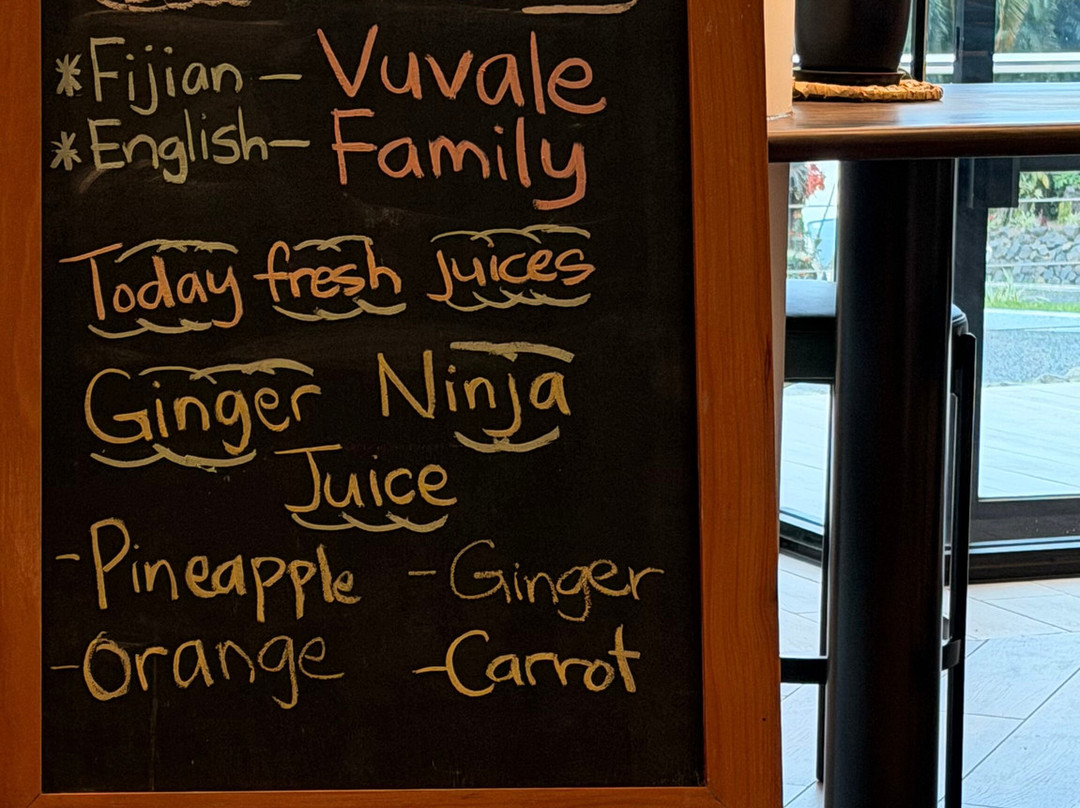 *Fijian - Vuvale
*English- Family
Today fresh juices
Ginger Ninja
Juice
-Pineapple -Ginger
-Orange -Carrot